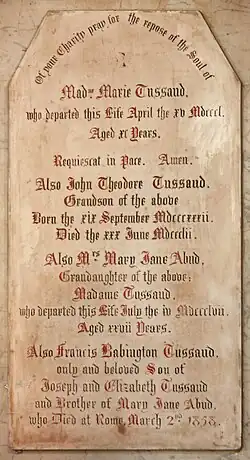 Of your Charity pray for the repose of the Soul of
Mad.me Marie Tussaud,
who departed this Life April the xv Mdcccl.
Aged xc Years.
Requiescat in Pace. Amen.
Also John Theodore Tussaud.
Grandson of the above
Born the xix September Mdcccxxxii.
Died the xxx June Mdccclii.
Also Mrs Mary Jane Abud,
Grandaughter of the above;
Madame Tussaud,
who departed this Life July the iv Mdccclvii.
Aged xxvii Years.
Also Francis Babington Tussaud,
only and beloved Son of
Joseph and Elizabeth Tussaud
and Brother of Mary Jane Abud,
who Died at Rome, March 2nd 1858.